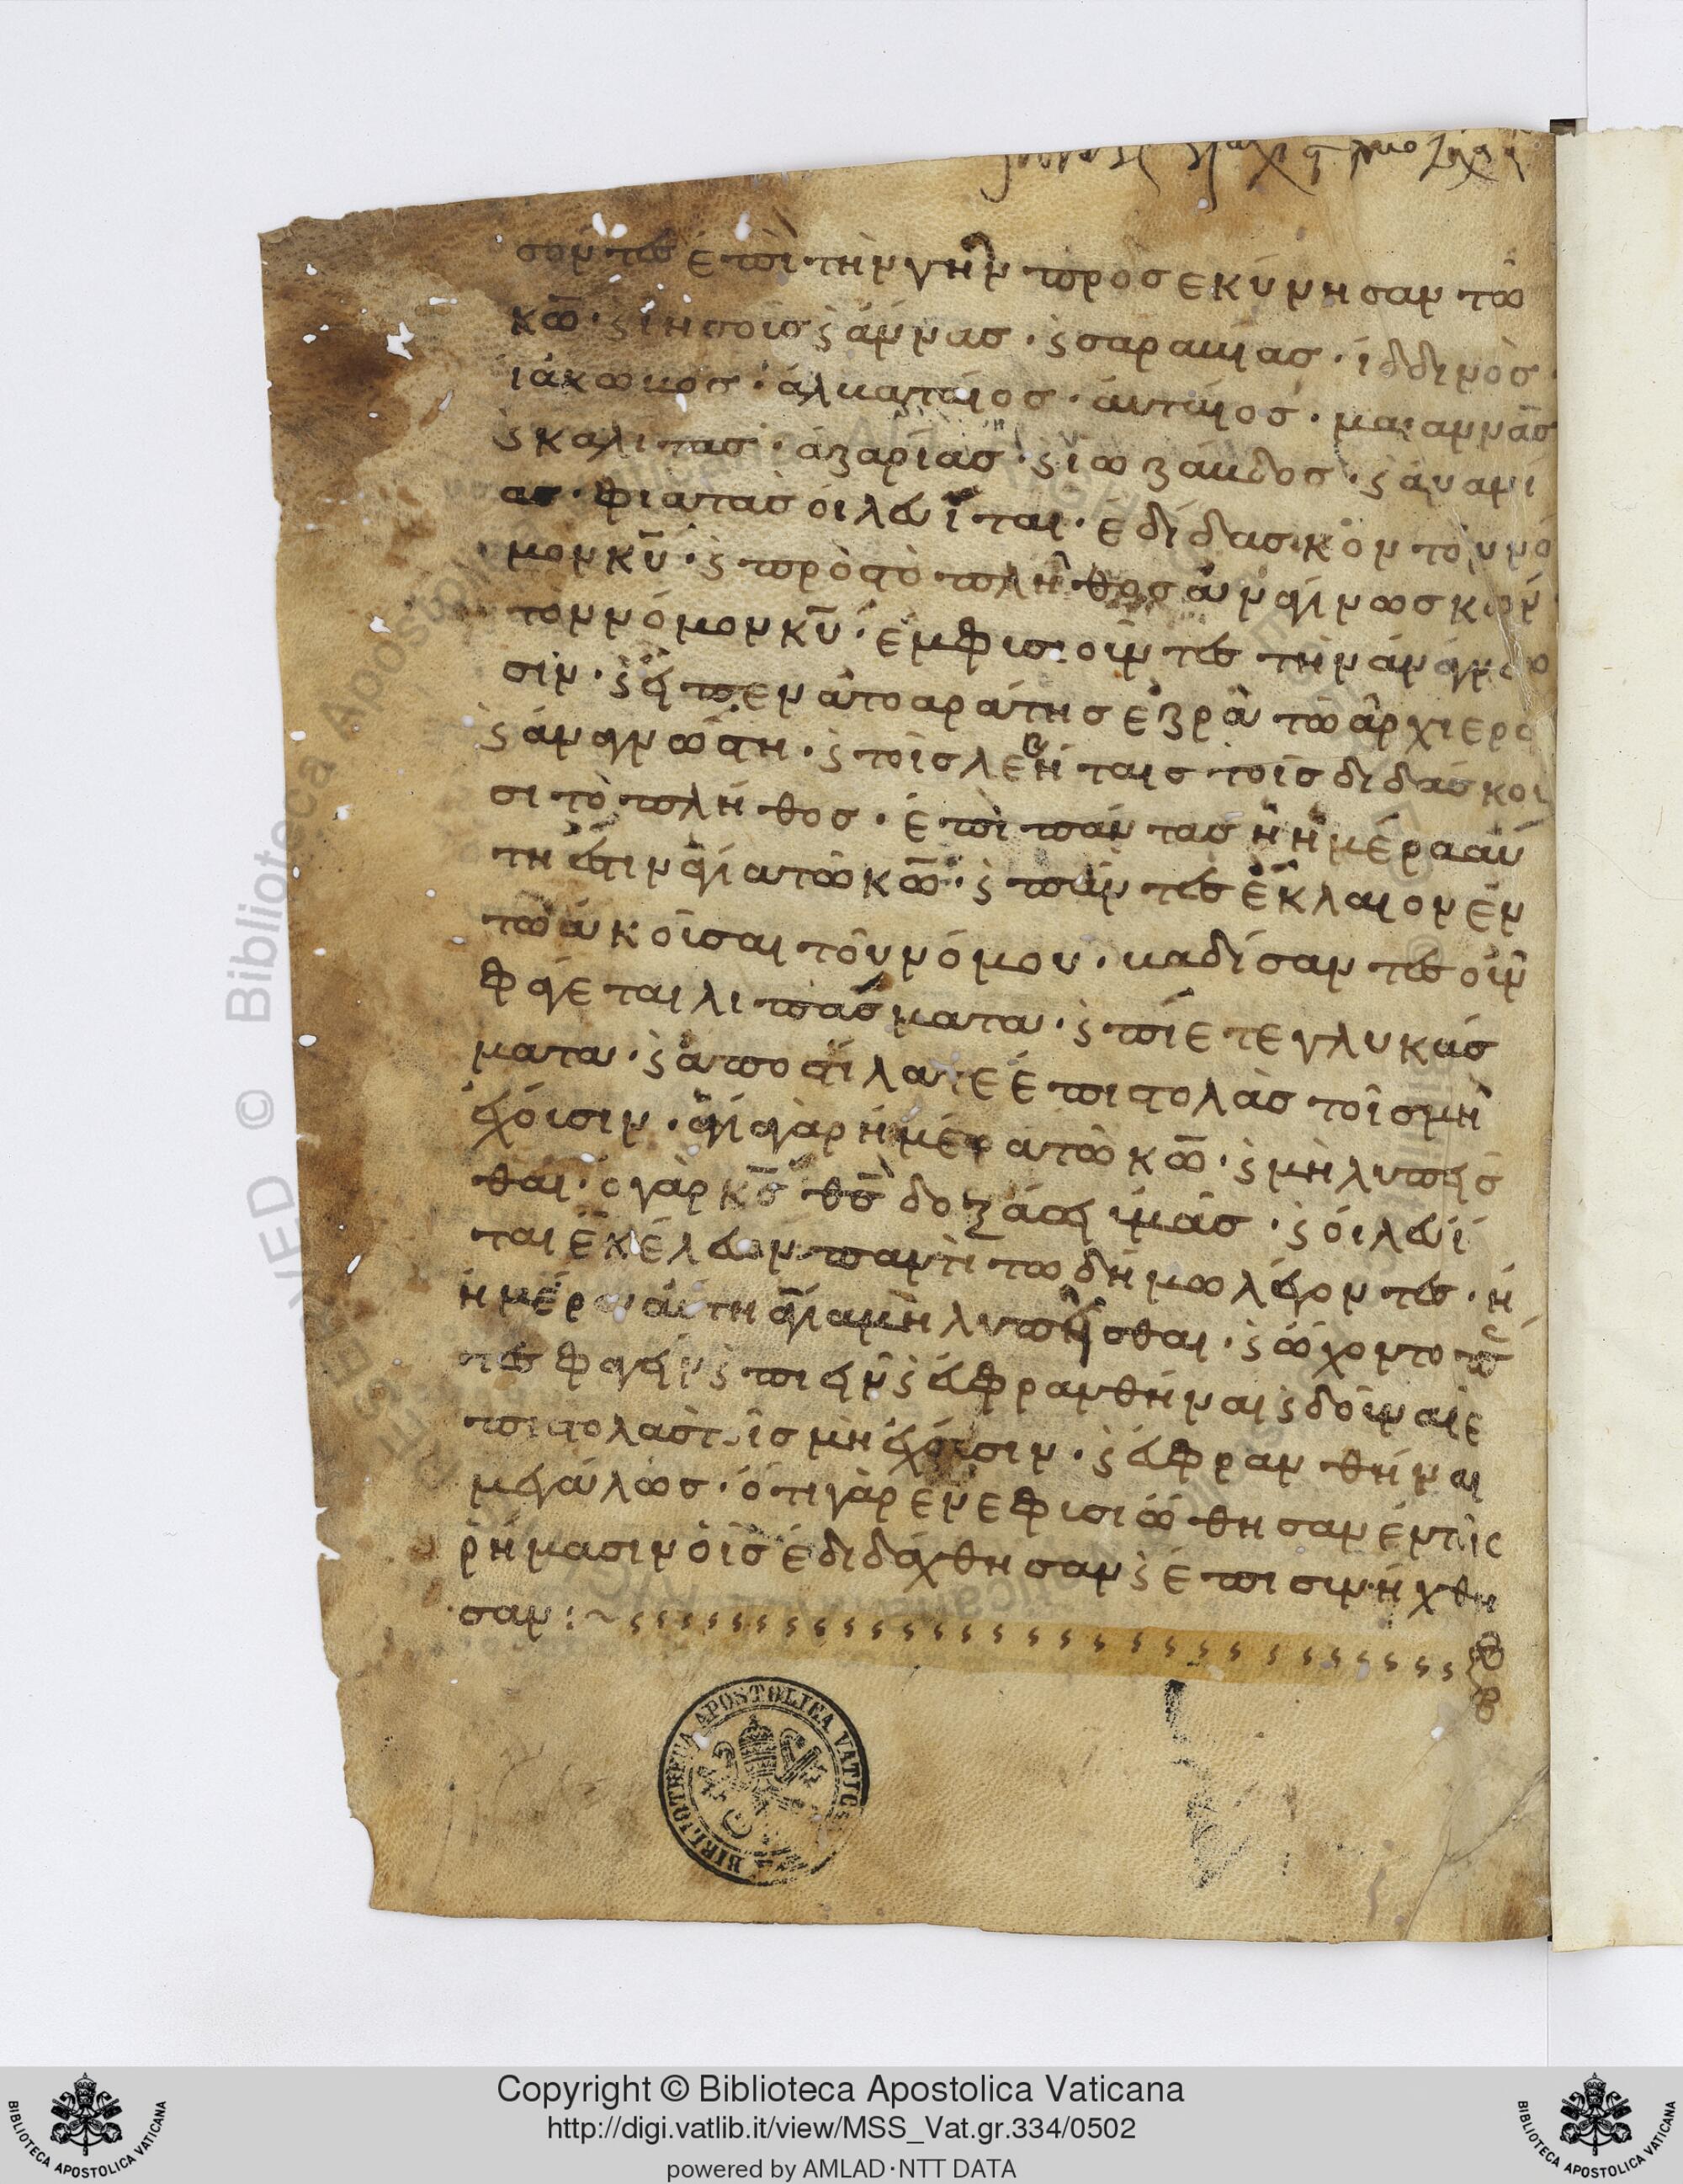 σόντες ἐπὶ τὴν γῆν προσεκύνησαν τῶ
κω̅· ϛ ἰησοῦς ϛ ἄννας· ϛ σαραβίας· ἰδδινὸς·
ἰάκωβος· ἀβαταῖος· αὐταῖος· μαιαννὰς
ϛ καλιτας· ἀζαρίας· ϛ ἰωζάβδος· ϛ ἀνανι
ας· φιατὰς οἱ λευῖται· ἐδίδασκον τὸν νό
μον κυ̅· ϛ πρὸς τὸ πλῆθος ἀνεγίνωσκον
τὸν νόμον κυ̅· ἐμφυσιοῦντες τὴν ἀνάγνω
σιν· ϛ εἶπεν ἀτταράτης ἐζρᾶ τῶ ἀρχιερεῖ
ϛ ἀναγνώστη· ϛ τοῖς λεβήταις τοῖς διδάσκου
σι τὸ πλῆθος· ἐπὶ πάντας ἡ ἡμέρα αύ
τη ἐστιν ἁγία τῶ κω̅· ϛ πάντες ἔκλαιον ἐν
τῶ ἀκοῦσαι τοῦ νόμου· βαδίσαντες οὖν
φάγεται λιπάσματα· ϛ πίετε γλυκάσ
ματα· ϛ ἀποστίλατε ἐπιστολὰς τοῖς μὴ
ἔχουσιν· ἁγία γὰρ ἡ ἡμέρα τῶ κω̅· ϛ μὴ λυπεῖσ
θαι· ὁ γὰρ κς̅ θς̅ δοξάσει ὑμᾶς· ϛ οἱ λευί
ται ἐκέλευον παντὶ τῶ δήμω λέγοντες· ἡ
ἡμέρα αὕτη ἁγία μὴ λυπῆσθαι· ϛ ὤχοντο πάν
τες φαγεῖν ϛ πιεῖν ϛ εὐφρανθῆναι ϛ δοῦναι ἐ
πιστολὰς τοῖς μὴ ἔχουσιν· ϛ εὐφρανθῆναι
μεγάλως· ὅτι γὰρ ἐνεφισιώθησαν ἐν τοῖς
ῥήμασιν οἷς ἐδιδάχθησαν ϛ ἐπισυνήχθη
σαν:~
BIBLIOTHECA APOSTOLICA VATICANA
Copyright © Biblioteca Apostolica Vaticana
http://digi.vatlib.it/view/MSS_Vat.gr.334/0502
powered by AMLAD·NTT DATA
BIBLIOTECA APOSTOLICA VATICANA
BIBLIOTECA APOSTOLICA VATICANA